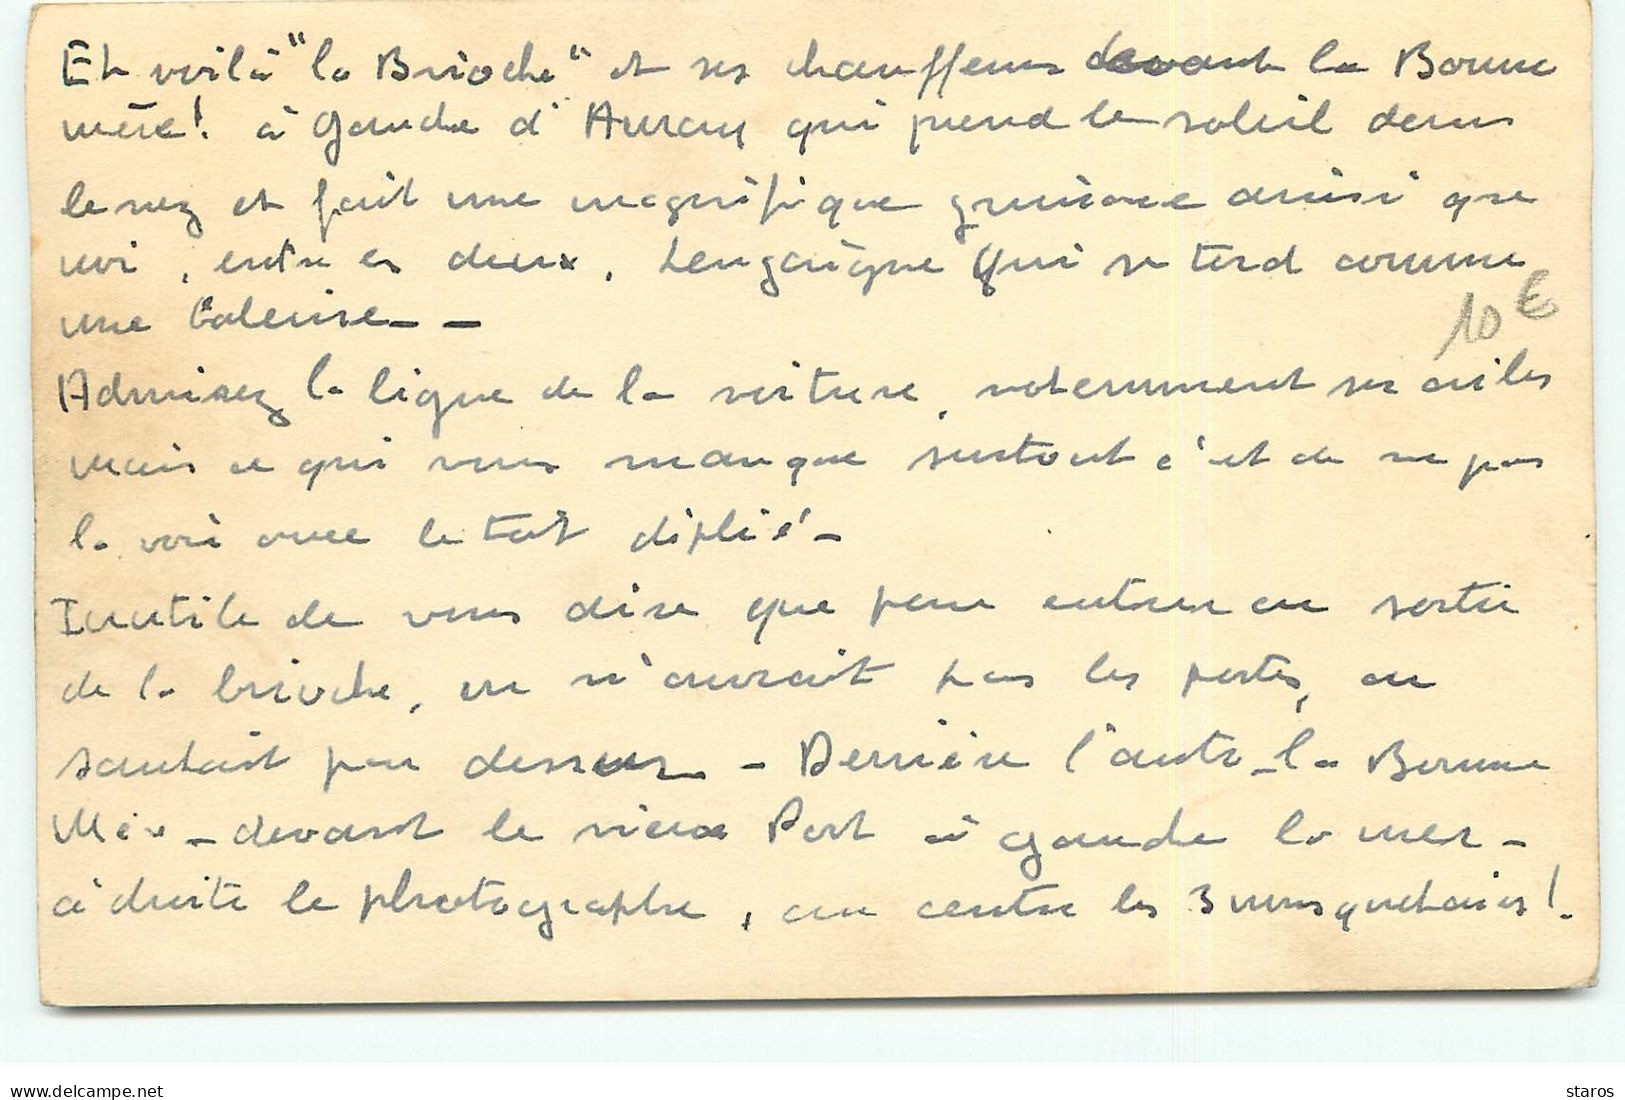 Et voilà "la Brioche" et ses chauffeurs devant la Bonne
mère! à gauche d'Auray qui prend le soleil dans
le nez et fait une magnifique grimace ainsi que
moi, entre les deux, Lengaigne qui se tord comme
une baleine - -
10 €
Admirez la ligne de la voiture, notamment ses ailes
mais ce qui vous manque surtout c'est de ne pas
la voir avec le toit déplié -
Inutile de vous dire que pour entrer ou sortir
de la brioche, on n'ouvrait pas les portes, on
sautait par dessus - Derrière l'auto - la Bonne
Mère - devant le vieux Port à gauche la mer -
à droite le photographe, au centre les 3 mousquetaires!
delcampe.net
staros